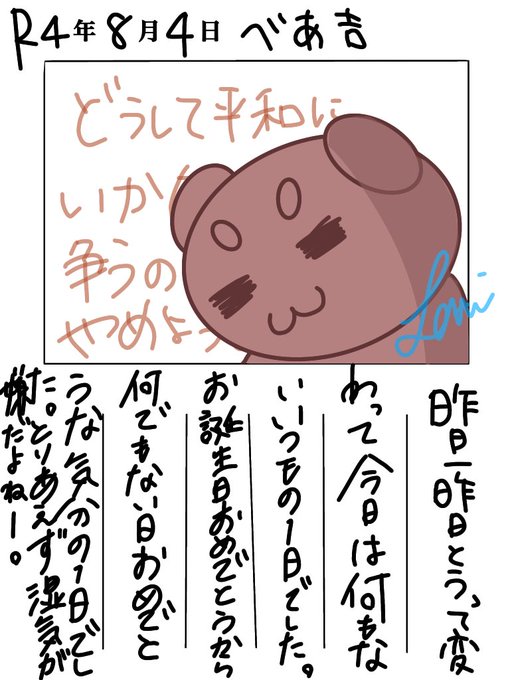 R4年8月4日 べあ吉
どうして平和に
いか
争うの
やめよう
Lomi
昨日一昨日とうって変
わって今日は何もな
いいつもの1日でした。
お誕生日おめでとうから
何でもない日おめでと
うな気分の1日でし
た。とりあえず湿気が
嫌だよねー。